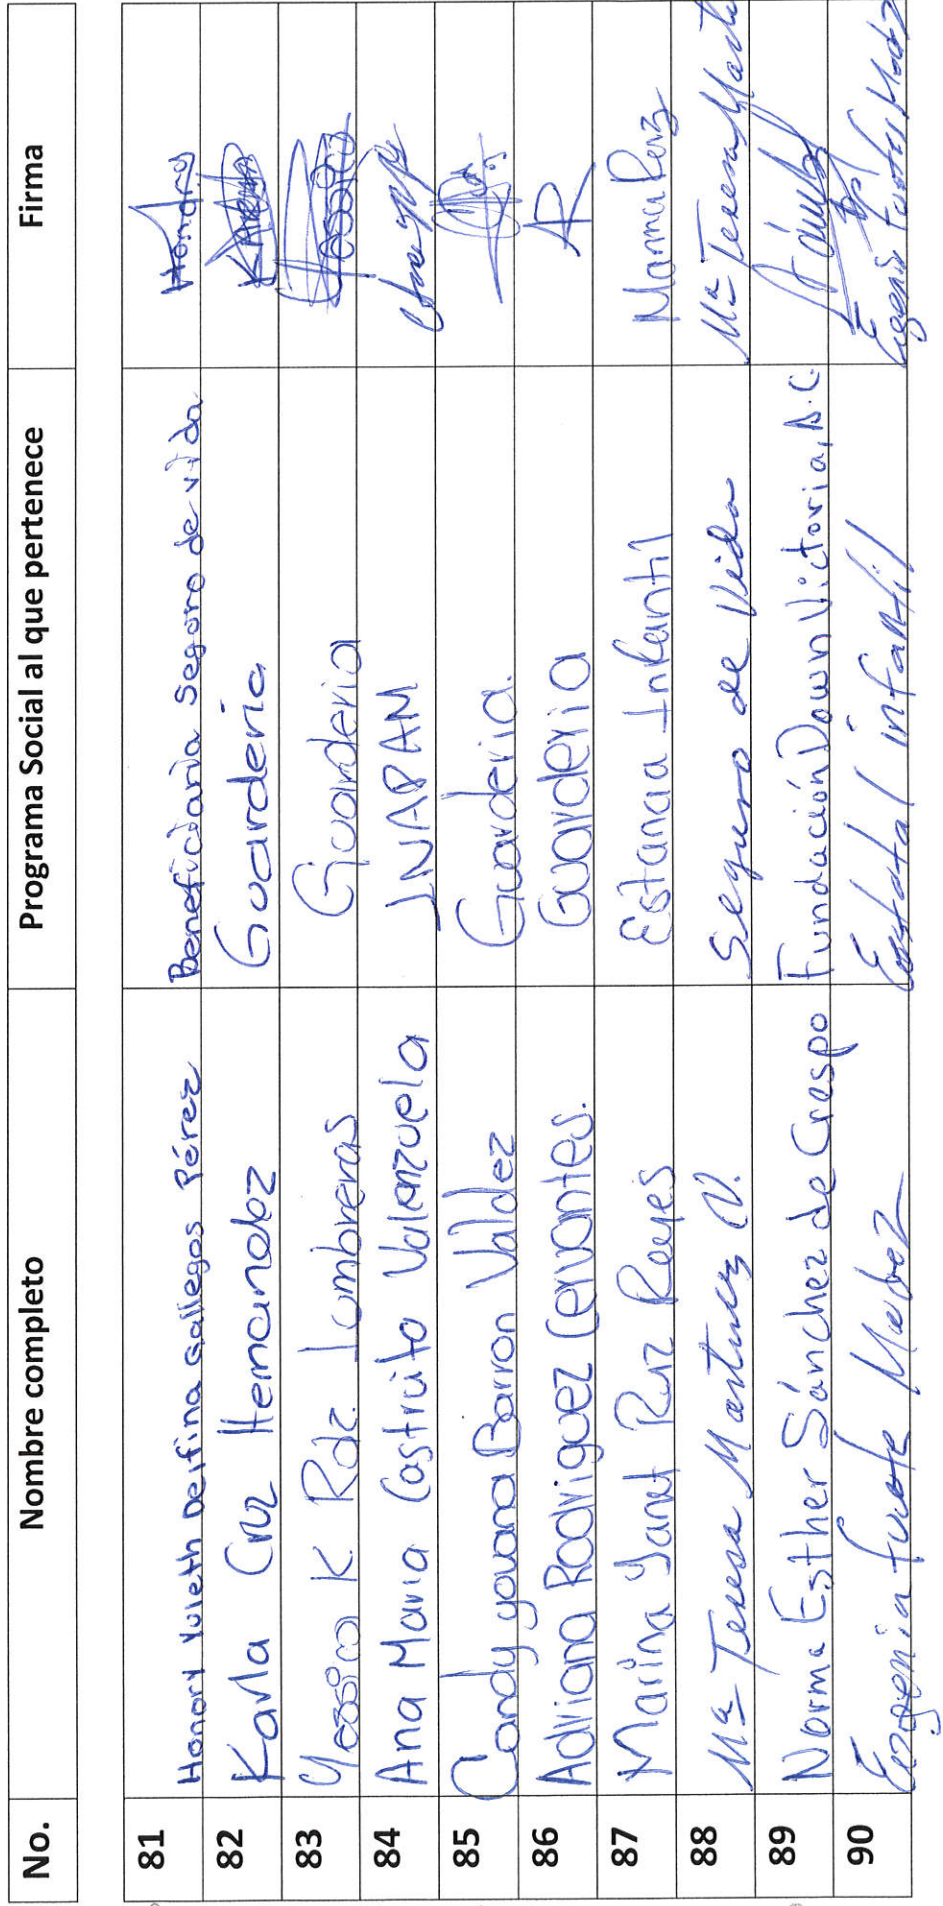 No. Nombre completo Programa Social al que pertenece Firma
81 Honory Yuleth Delfina Gallegos Pérez Beneficiaria Seguro de vida Honory
82 Karla Cruz Hernandez Guarderia Karla
83 Yessica K. Rdz. Lumbreras Guarderia Yessica
84 Ana Maria Castruito Valenzuela INAPAM
85 Candy yovana Barron Valdez Guarderia.
86 Adriana Rodriguez Cervantes. Guarderia
87 Marina Yanet Ruz Reyes Estancia Infantil Marina Ruz
88 Mª Teresa Martinez V. Seguro de Vida Mª Teresa Martz
89 Norma Esther Sánchez de Crespo Fundación Down Victoria, A.C.
90 Eugenia Estatal infantil